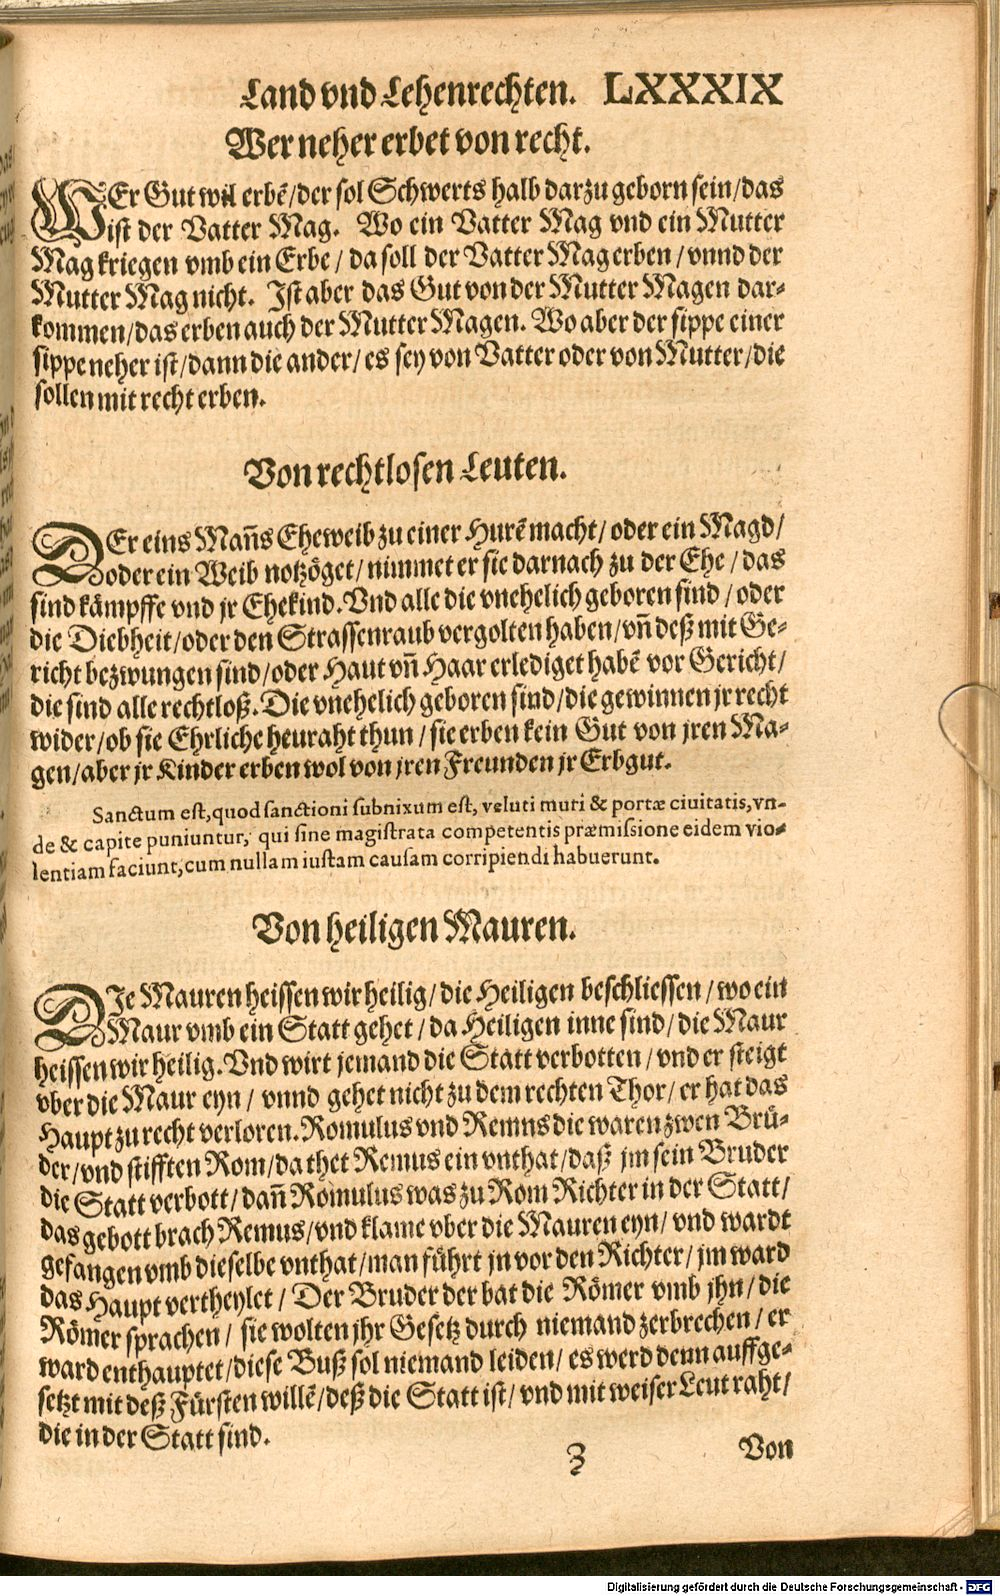 Land vnd Lehenrechten. LXXXIX
Wer neher erbet von recht.
WEr Gut wil erbē/der sol Schwerts halb darzu geborn sein/das
ist der Vatter Mag. Wo ein Vatter Mag vnd ein Mutter
Mag kriegen vmb ein Erbe/ da soll der Vatter Mag erben/ vnnd der
Mutter Mag nicht. Ist aber das Gut von der Mutter Magen dar-
kommen/das erben auch der Mutter Magen. Wo aber der sippe einer
sippe neher ist/dann die ander/ es sey von Vatter oder von Mutter/die
sollen mit recht erben.
Von rechtlosen Leuten.
DEr eins Mañs Eheweib zu einer Hurē macht/ oder ein Magd/
oder ein Weib notzöget/ nimmet er sie darnach zu der Ehe/ das
sind kämpffe vnd jr Ehekind. Vnd alle die vnehelich geboren sind/ oder
die Diebheit/oder den Strassenraub vergolten haben/vñ deß mit Ge-
richt bezwungen sind/oder Haut vñ Haar erlediget habē vor Gericht/
die sind alle rechtloß. Die vnehelich geboren sind/die gewinnen jr recht
wider/ob sie Ehrliche heuraht thun/ sie erben kein Gut von jren Ma-
gen/aber jr Kinder erben wol von jren Freunden jr Erbgut.
Sanctum est, quod sanctioni subnixum est, veluti muri & portæ ciuitatis, vn-
de & capite puniuntur, qui sine magistrata competentis præmissione eidem vio-
lentiam faciunt, cum nullam iustam causam corripiendi habuerunt.
Von heiligen Mauren.
DIe Mauren heissen wir heilig/ die Heiligen beschliessen/ wo ein
Maur vmb ein Statt gehet/ da Heiligen inne sind/ die Maur
heissen wir heilig. Vnd wirt jemand die Statt verbotten/ vnd er steigt
vber die Maur eyn/ vnnd gehet nicht zu dem rechten Thor/ er hat das
Haupt zu recht verloren. Romulus vnd Remns die waren zwen Brü-
der/vnd stifften Rom/da thet Remus ein vnthat/daß jm sein Bruder
die Statt verbott/ dañ Romulus was zu Rom Richter in der Statt/
das gebott brach Remus/vnd klame vber die Mauren eyn/ vnd wardt
gefangen vmb dieselbe vnthat/man führt jn vor den Richter/ jm ward
das Haupt vertheylet/ Der Bruder der bat die Römer vmb jhn/ die
Römer sprachen/ sie wolten jhr Gesetz durch niemand zerbrechen/ er
ward enthauptet/diese Buß sol niemand leiden/ es werd denn auffge-
setzt mit deß Fürsten willē/deß die Statt ist/ vnd mit weiser Leut raht/
die in der Statt sind.
3 Von
Digitalisierung gefördert durch die Deutsche Forschungsgemeinschaft - DFG